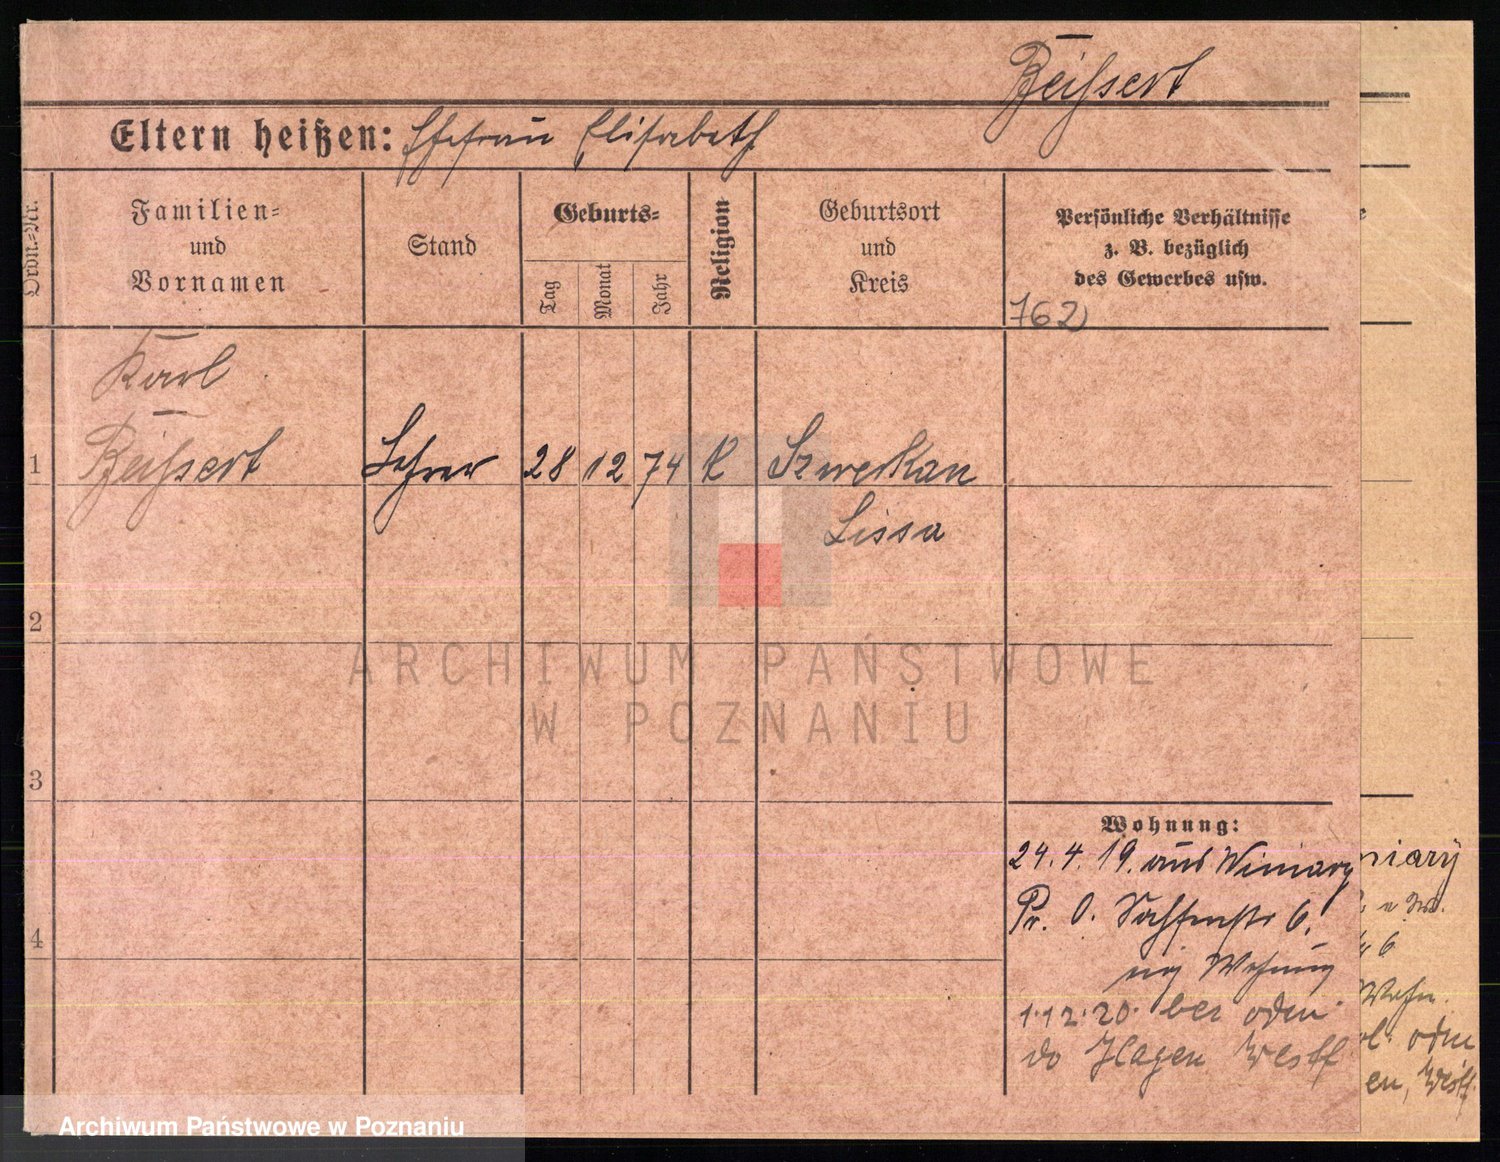 Beissert
Eltern heißen: Ehefrau Elisabeth
Ordn.-Nr.
Familien-
und
Vornamen
Stand
Geburts-
Tag
Monat
Jahr
Religion
Geburtsort
und
Kreis
Persönliche Verhältnisse
z. B. bezüglich
des Gewerbes usw.
762
Karl
1 Beissert Lehrer 28 12 74 K Szwerkan
Lissa
2
3
4
Wohnung:
24.4.19. aus Winiary
Pr. O. Sachsenstr 6.
eig Wohnung
1.12.20. bei odm
do Hagen Westf
niary
6
Wohn.
odm
en, Westf
ARCHIWUM PAŃSTWOWE
W POZNANIU
Archiwum Państwowe w Poznaniu